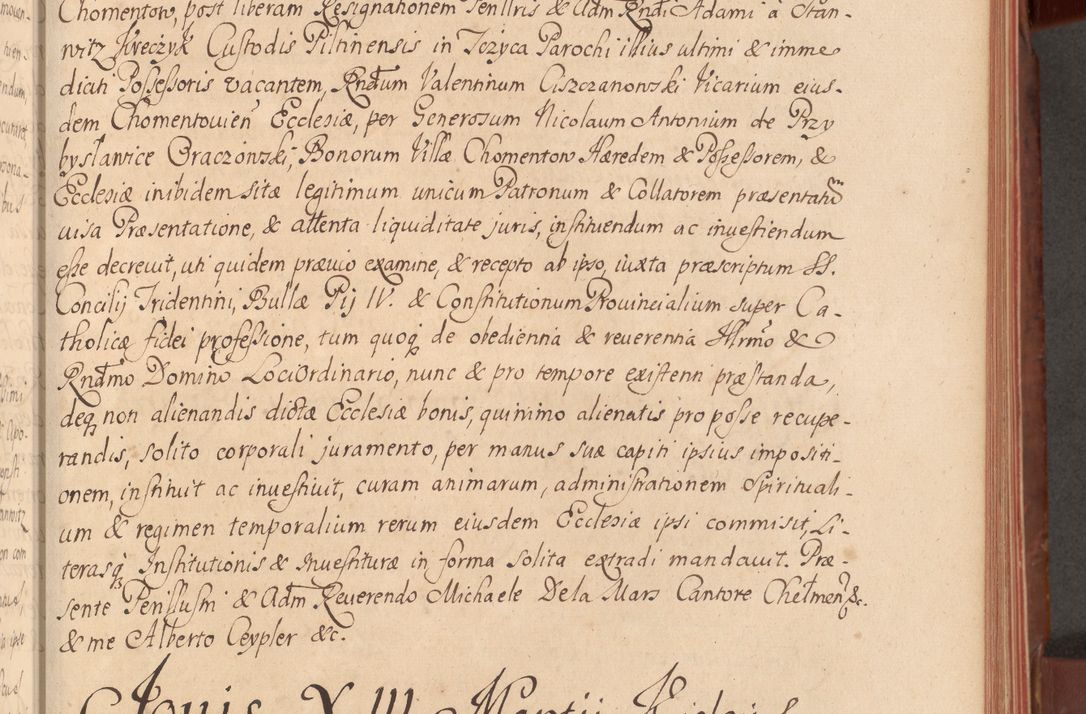 Chomentow, post liberam Resignationem Penllris & Adm Rndi Adami à Stan-
witz Jureczyk Custodis Pilsnensis in Jezyca Parochi illius ultimi & imme
diati Possessoris vacantem, Rndum Valentinum Ciszczanowski Vicarium eius-
dem Chomentovien Ecclesiæ, per Generosum Nicolaum Antonium de Przy
bysławice Oraczowski, Bonorum Villæ Chomentow Hæredem & Possessorem, &
Ecclesiæ inibidem sitæ legitimum unicum Patronum & Collatorem præsentatum
visa Præsentatione, & attenta liquiditate juris, instituendum ac investiendum
esse decrevit, uti quidem prævio examine, & recepto ab ipso, iuxta præscriptum SS.
Concilij Tridentini, Bullæ Pij IV. & Constitutionum Provincialium super Ca-
tholicæ fidei professione, tum quoq de obedientia & reverentia Illrmo &
Rndmo Domino Loci Ordinario, nunc & pro tempore existenti præstanda,
deq non alienandis dictæ Ecclesiæ bonis, quinimo alienatis pro posse recupe-
randis, solito corporali juramento, per manus suæ capiti ipsius impositi-
onem, instituit ac investivit, curam animarum, administrationem Spirituali-
um & regimen temporalium rerum eiusdem Ecclesiæ ipsi commisit, Li-
terasq Institutionis & Investituræ in forma solita extradi mandavit. Præ-
sente Penllustri & Adm Reverendo Michaele De la Mars Cantore Chełmen &c.
& me Alberto Ceypler &c.
Jovis XIII Martij